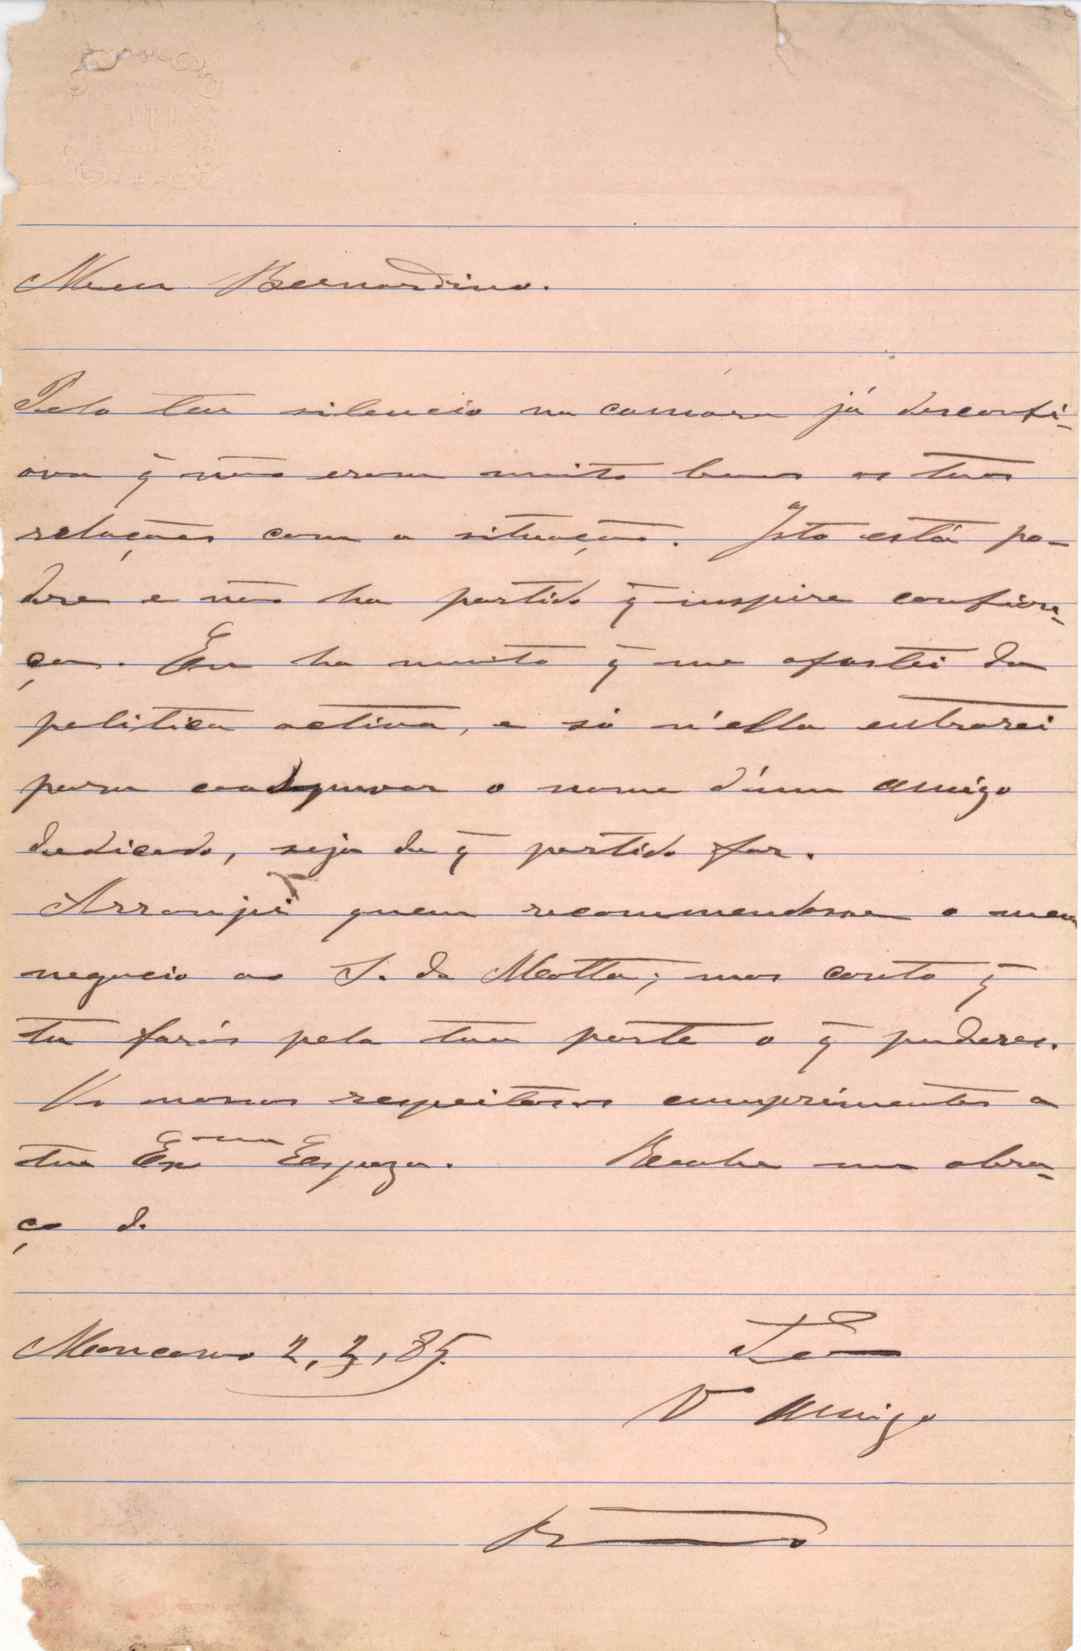 Meu Bernardino.
Pelo teu silencio na camara já desconfi-
ava q̃ não eram muito boas as tuas
relações com a situação. Isto está po-
dre e não ha partido q̃ inspire confian-
ça. Eu ha muito q̃ me afastei da
politica activa, e só n'ella entrarei
para o nome d'um amigo
dedicado, seja de q̃ partido for.
Arranjei quem recommendasse o meu
negocio ao S. da Motta; mas conto q̃
tu farás pela tua parte o q̃ puderes.
Os nossos respeitosos cumprimentos a
tua Exma Espoza. Recebe um abra-
ço de
Moncorvo 2, 3, 85. Teu
Vo amigo